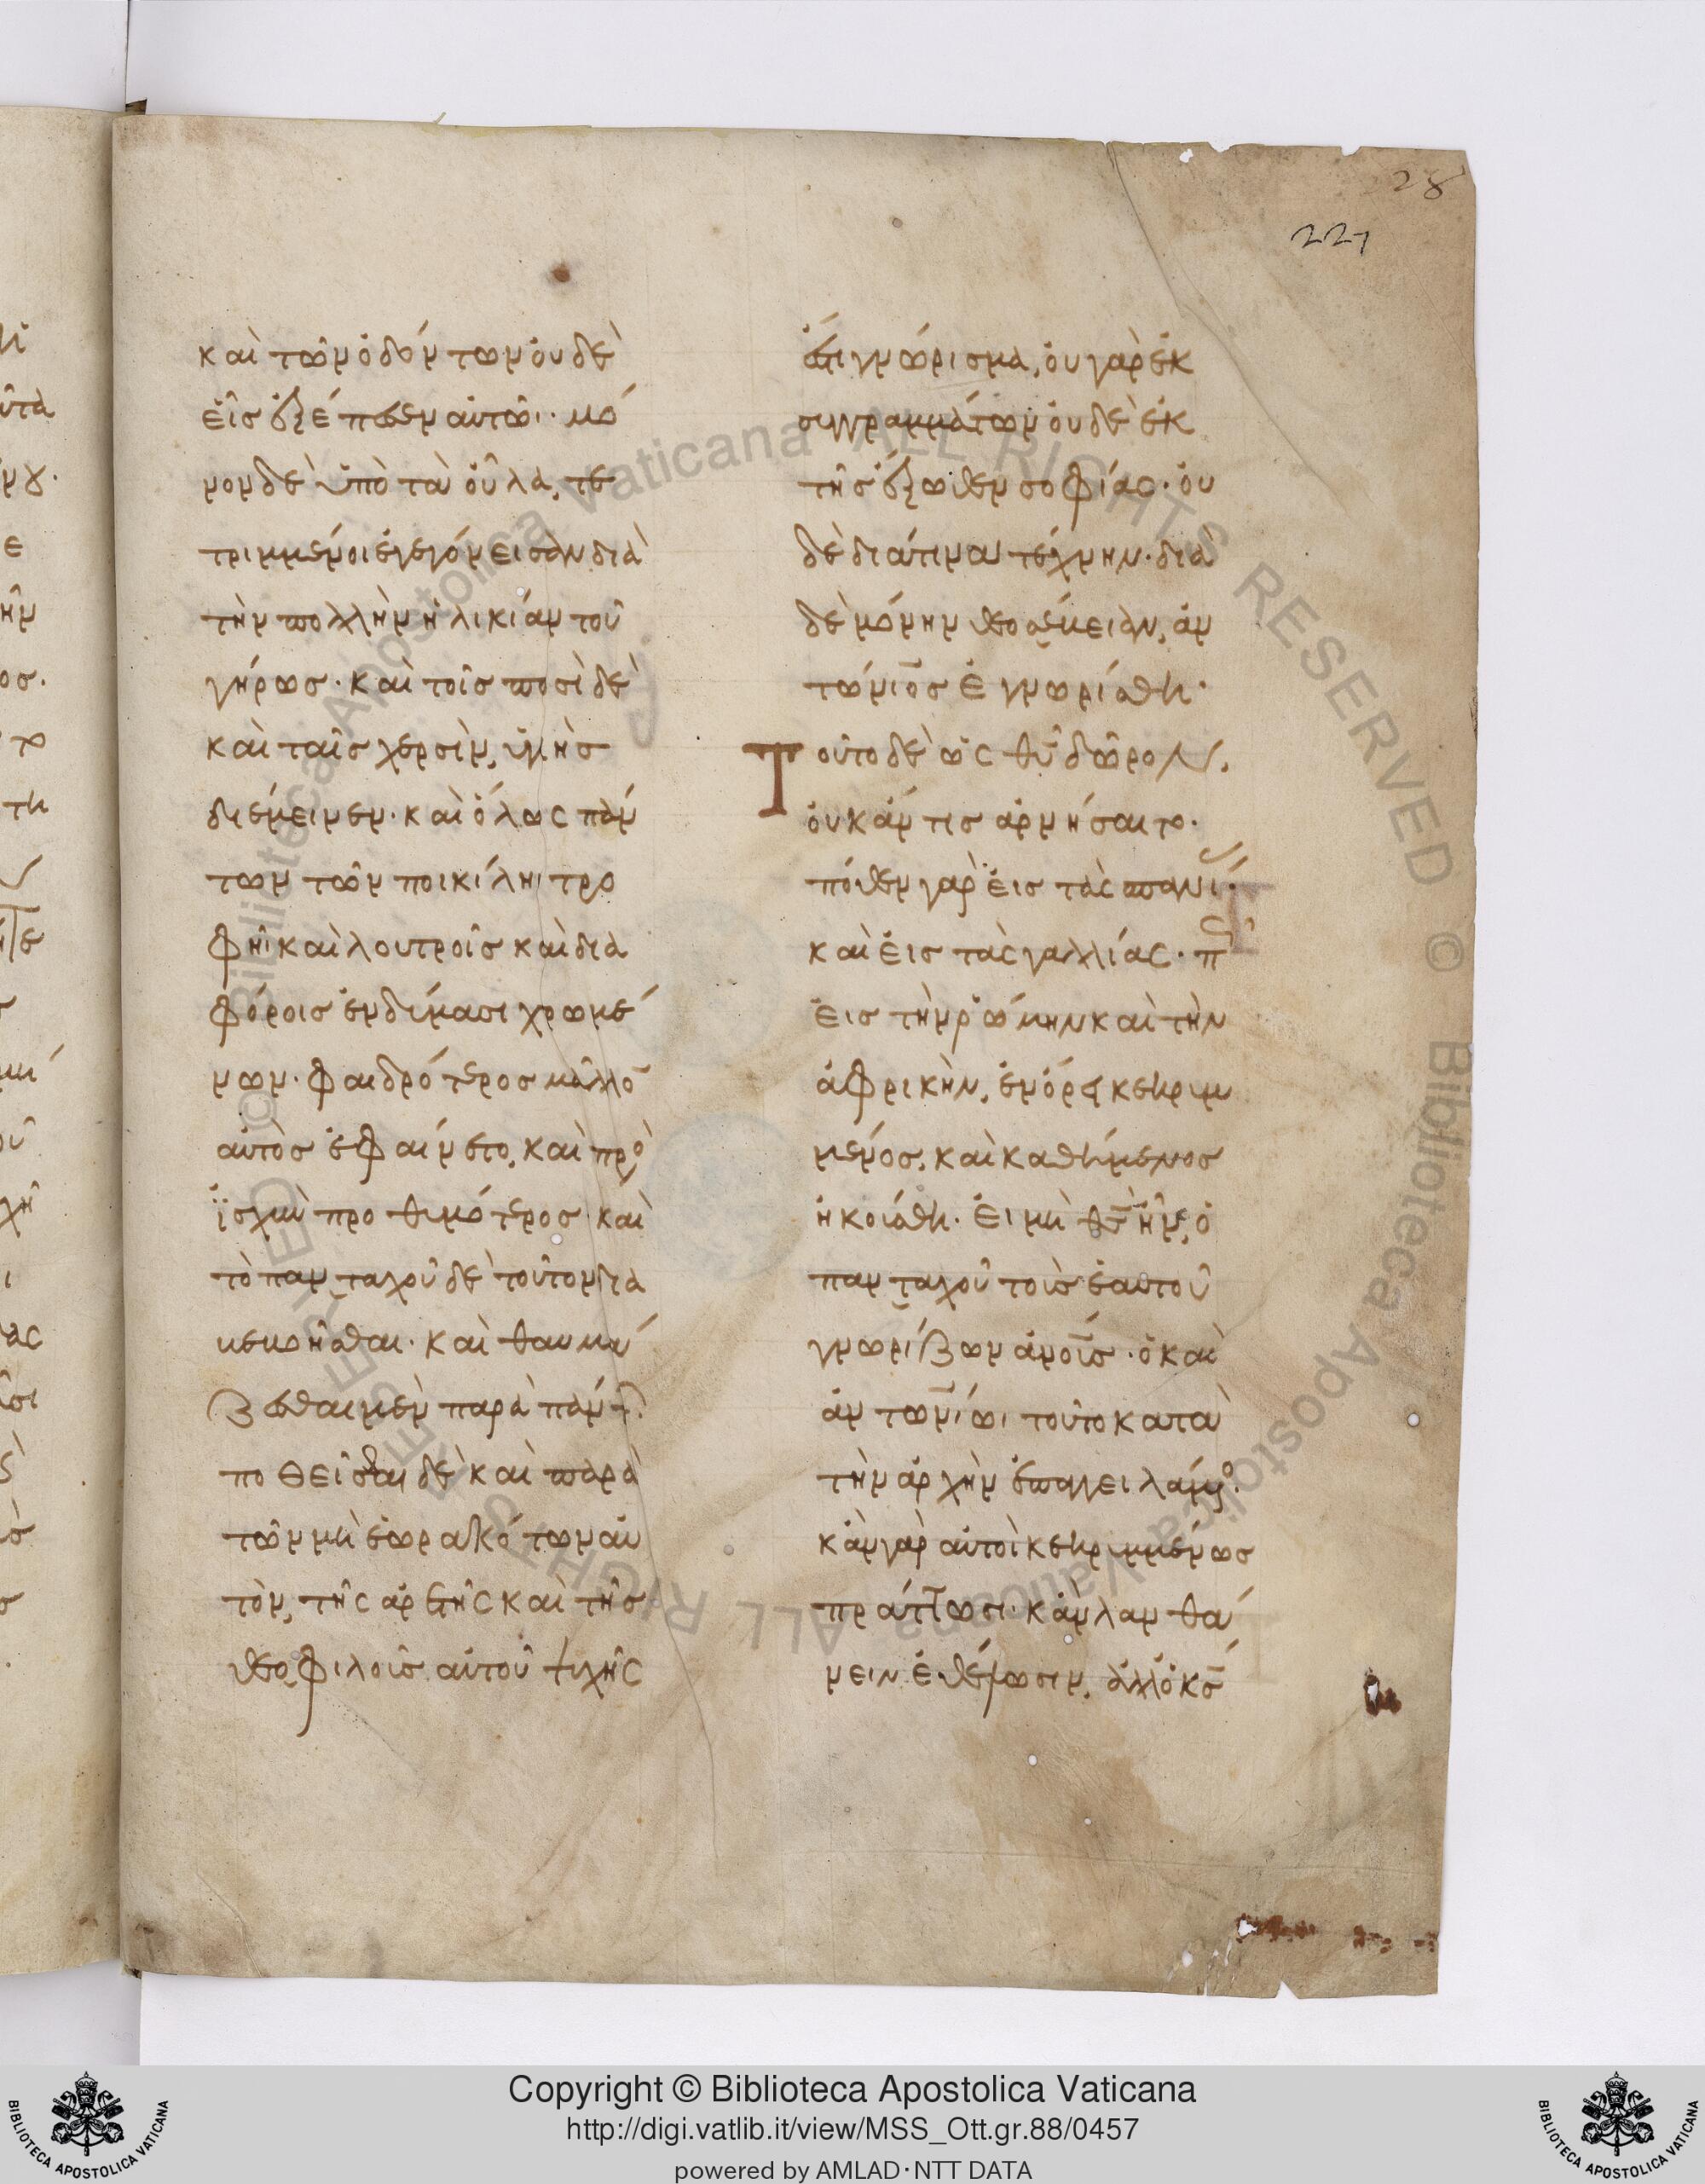 28
227
καὶ τῶν ὀδόντων οὐδὲ
εἷς ἐξέπεσεν αὐτῶι· μό
νον δὲ ὑπὸ τὰ οὖλα, τε
τριμμένοι ἐγεγόνεισαν διὰ
τὴν πολλὴν ἡλικίαν τοῦ
γήρως· καὶ τοῖς ποσὶ δὲ
καὶ ταῖς χερσὶν, ὑγιὴς
διέμεινεν· καὶ ὅλως πάν
των τῶν ποικίληι τρο
φῆι καὶ λουτροῖς καὶ δια
φόροις ἐνδύμασι χρωμέ
νων· φαιδρότερος μᾶλλο̄
αὐτὸς ἐφαίνετο, καὶ πρὸ
ἰσχὺν προθυμότερος καὶ
τὸ πανταχοῦ δὲ τοῦτον δια
βεβοῆσθαι· καὶ θαυμά
ζεσθαι μὲν παρὰ πάντ
ποθεῖσθαι δὲ καὶ παρὰ
τῶν μὴ ἑωρακότων αὐ
τὸν, τῆς ἀρετῆς καὶ τῆς
θεοφιλοῦς αὐτοῦ ψυχῆς
ἐστι γνώρισμα, οὐ γὰρ ἐκ
συγγραμμάτων οὐδὲ ἐκ
τῆς ἔξωθεν σοφίας· οὐ
δὲ διά τινα τέχνην· διὰ
δὲ μόνην θεοσέβειαν, ἀν
τώνιος ἐγνωρίσθη·
Τοῦτο δὲ ὡς θῦ δῶρον,
οὐκ ἄν τις ἀρνήσαιτο·
πόθεν γὰρ εἰς τὰς σπανί
καὶ εἰς τὰς γαλλίας· π
εἰς τὴν ῥώμην καὶ τὴν
ἀφρικὴν, ἐν ὄρει κεκρυμ
μένος, καὶ καθήμενος
ἠκούσθη· εἰ μὴ θς̄ ἦν, ὁ
πανταχοῦ τοὺς ἑαυτοῦ
γνωρίζων ἀνο̄υς· ὁ καὶ
ἀντωνίωι τοῦτο κατὰ
τὴν ἀρχὴν ἐπαγγειλάμο
κἂν γὰρ αὐτοὶ κεκρυμμένως
πράττωσι· κἂν λανθά
νειν ἐθέλωσιν, ἀλλ' ὁ κς̄
Copyright © Biblioteca Apostolica Vaticana
http://digi.vatlib.it/view/MSS_Ott.gr.88/0457
powered by AMLAD·NTT DATA